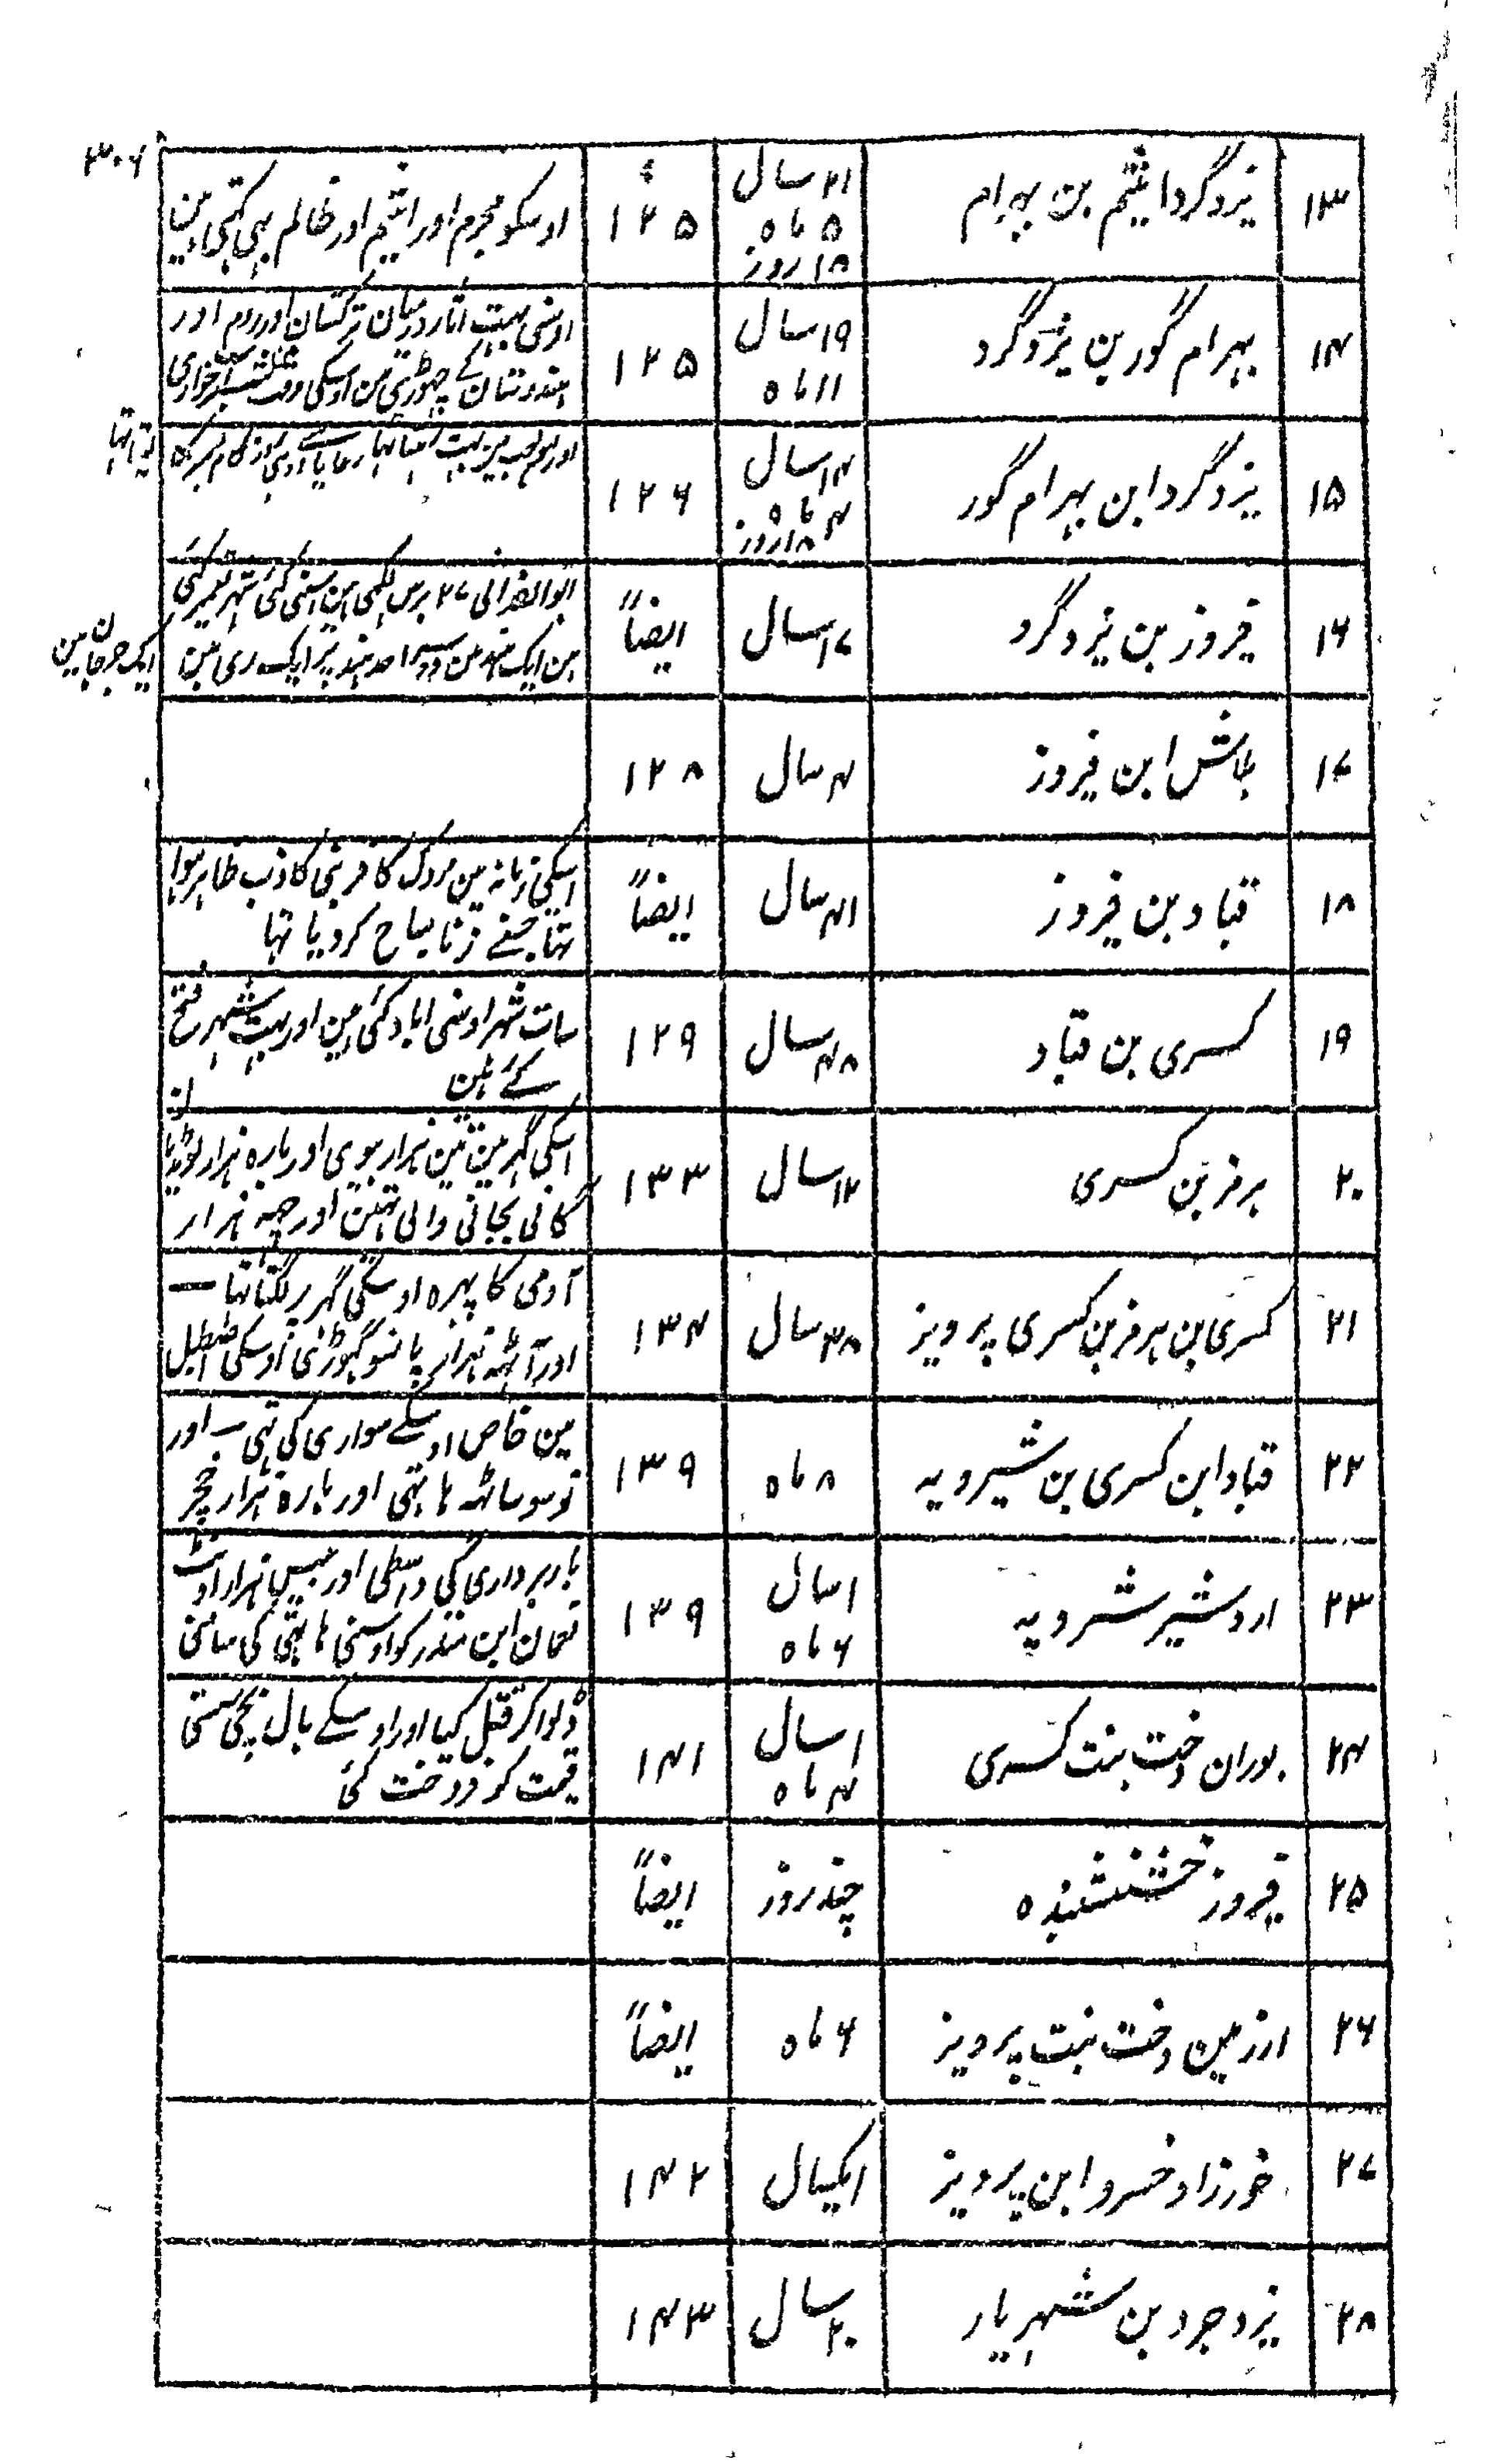 ۳۰۶
۱۳ یزدگرد اثیم بن بہرام ۲۱ سال ۵ ماہ ۱۸ روز ۱۲۵ اوسکو مجرم اور اثیم اور ظالم بہی کہتی ہین
۱۴ بہرام گور بن یزدگرد ۱۹ سال ۱۱ ماہ ۱۲۵ اوسنی بہت اثار درمیان ترکستان اور روم اور
ہندوستان کے چہوڑی ہین اوسکی وقت
۱۵ یزدگرد ابن بہرام گور ۱۴ سال ۴ ماہ ۱۸ روز ۱۲۶ اور لہو لعب مین بہت رہتا تہا رعایا سے
لیتا تہا
۱۶ فیروز بن یزدگرد ۱۷ سال ایضاً ۲۷ برس لکہی ہین اسنی کئی شہر تعمیر کئی
ہین ایک ہند مین ایک ری مین
ایک جرجان مین
۱۷ بلاش ابن فیروز ۴ سال ۱۲۸
۱۸ قباد بن فیروز ۴۱ سال ایضاً اسکی زمانہ مین مزدک کافر نبی کاذب ظاہر ہوا
تہا جسنے زنا مباح کر دیا تہا
۱۹ کسری بن قباد ۴۸ سال ۱۲۹ سات شہر اوسنی اباد کئی ہین اور بہت شہر فتح
کئے ہین
۲۰ ہرمز بن کسری ۱۲ سال ۱۳۳ اسکی گہر مین تین ہزار بیوی اور بارہ ہزار لونڈیان
گانی بجانی والی تہین اور چہہ ہزار
۲۱ کسری بن ہرمز بن کسری پرویز ۳۸ سال ۱۳۴ آدمی کا پہرہ اوسکی گہر پر لگتا تہا —
اور آٹہہ ہزار پانسو گہوڑی اوسکی اصطبل
۲۲ قباد ابن کسری بن شیرویہ ۸ ماہ ۱۳۹ مین خاص اوسکے سواری کی تہی اور
نو سو ساٹہہ ہاتہی اور بارہ ہزار خچر
۲۳ اردشیر شرویہ ۱ سال ۶ ماہ ۱۳۹ باربرداری کی واسطی اور بیس ہزار اونٹ
نعمان ابن منذر کو اوسنی ہاتہی کی سامنی
۲۴ بوران دخت بنت کسری ۱ سال ۴ ماہ ۱۴۱ ڈلوا کر قتل کیا اور اوسکے بال بچی سستی
قیمت کو فروخت کئی
۲۵ فیروز خشنشندہ چند روز ایضاً
۲۶ ارزمین دخت بنت پرویز ۶ ماہ ایضاً
۲۷ خورزاد خسرو ابن پرویز ایکسال ۱۴۲
۲۸ یزدجرد بن شہریار ۲۰ سال ۱۴۳